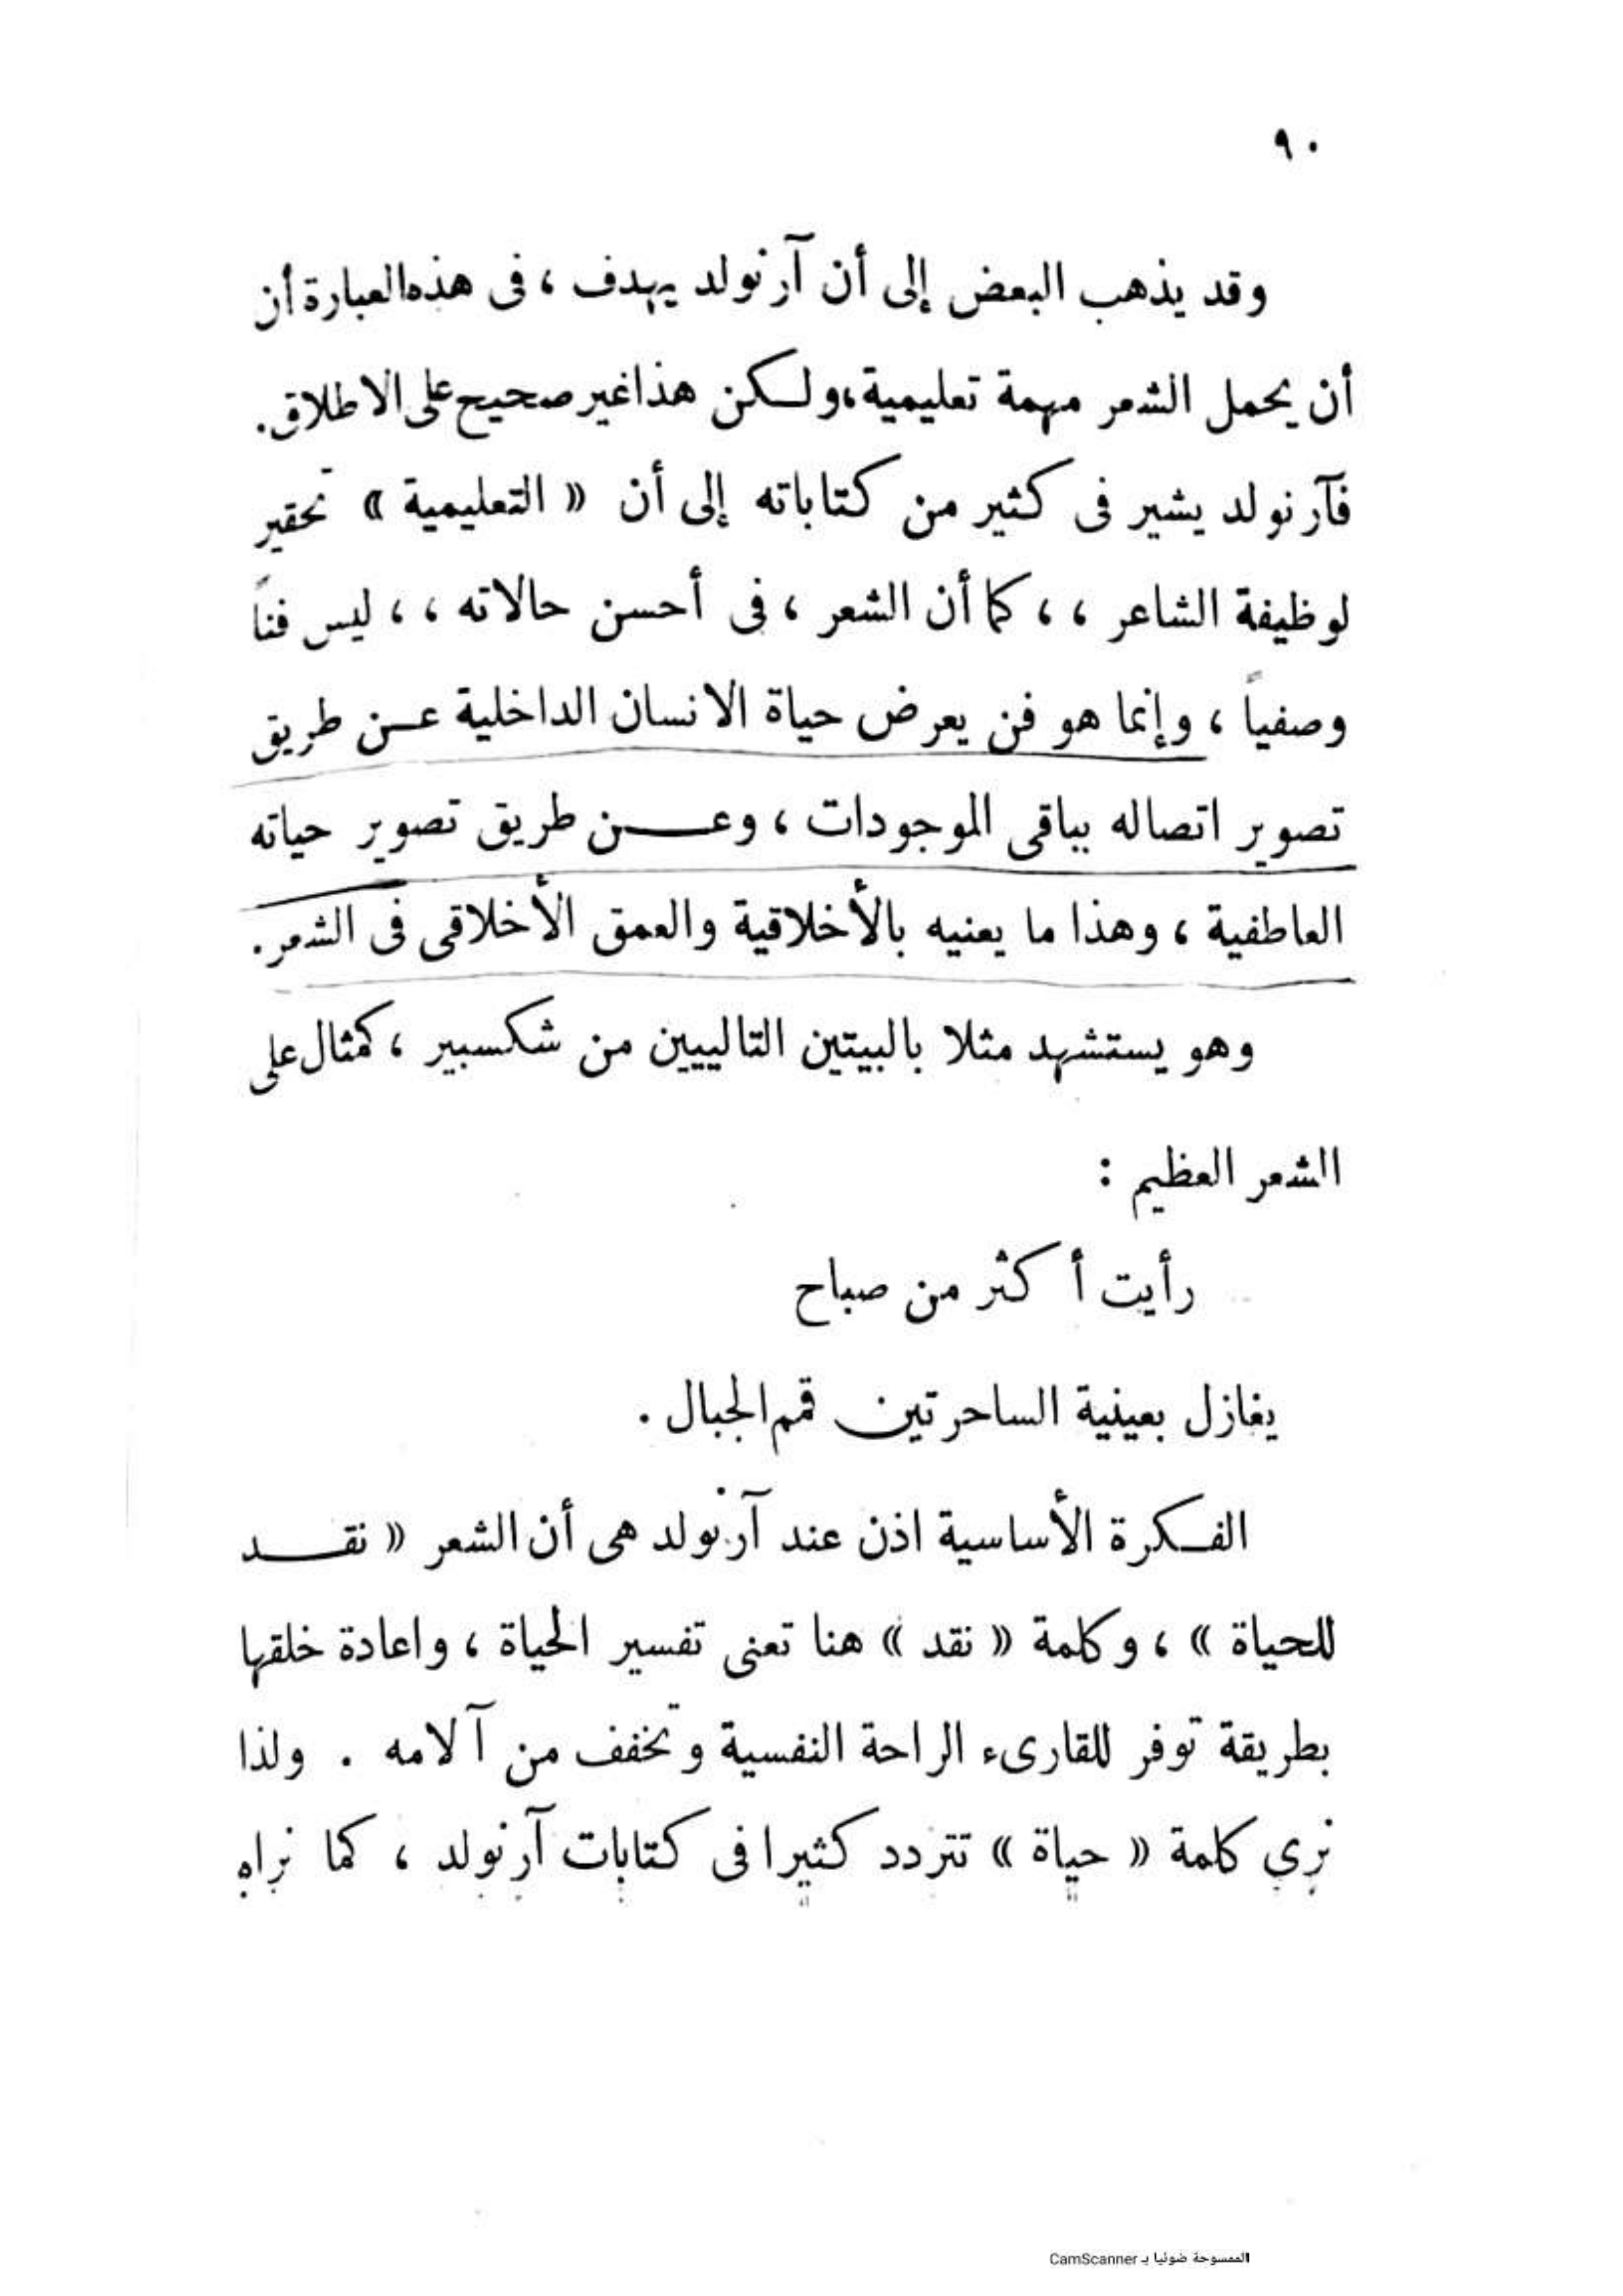 ٩٠
وقد يذهب البعض إلى أن آرنولد يهدف ، فى هذه العبارة أن
أن يحمل الشعر مهمة تعليمية ، ولكن هذا غير صحيح على الاطلاق .
فآرنولد يشير فى كثير من كتاباته إلى أن « التعليمية » تحقير
لوظيفة الشاعر ، ، كما أن الشعر ، فى أحسن حالاته ، ، ليس فناً
وصفياً ، وإنما هو فن يعرض حياة الانسان الداخلية عن طريق
تصوير اتصاله بباقى الموجودات ، وعن طريق تصوير حياته
العاطفية ، وهذا ما يعنيه بالأخلاقية والعمق الأخلاقى فى الشعر .
وهو يستشهد مثلا بالبيتين التاليين من شكسبير ، كمثال على
الشعر العظيم :
رأيت أكثر من صباح
يغازل بعينية الساحرتين قمم الجبال .
الفكرة الأساسية اذن عند آرنولد هى أن الشعر « نقد
للحياة » ، وكلمة « نقد » هنا تعنى تفسير الحياة ، واعادة خلقها
بطريقة توفر للقارىء الراحة النفسية وتخفف من آلامه . ولذا
نرى كلمة « حياة » تتردد كثيرا فى كتابات آرنولد ، كما نراه
الممسوحة ضوئيا بـ CamScanner